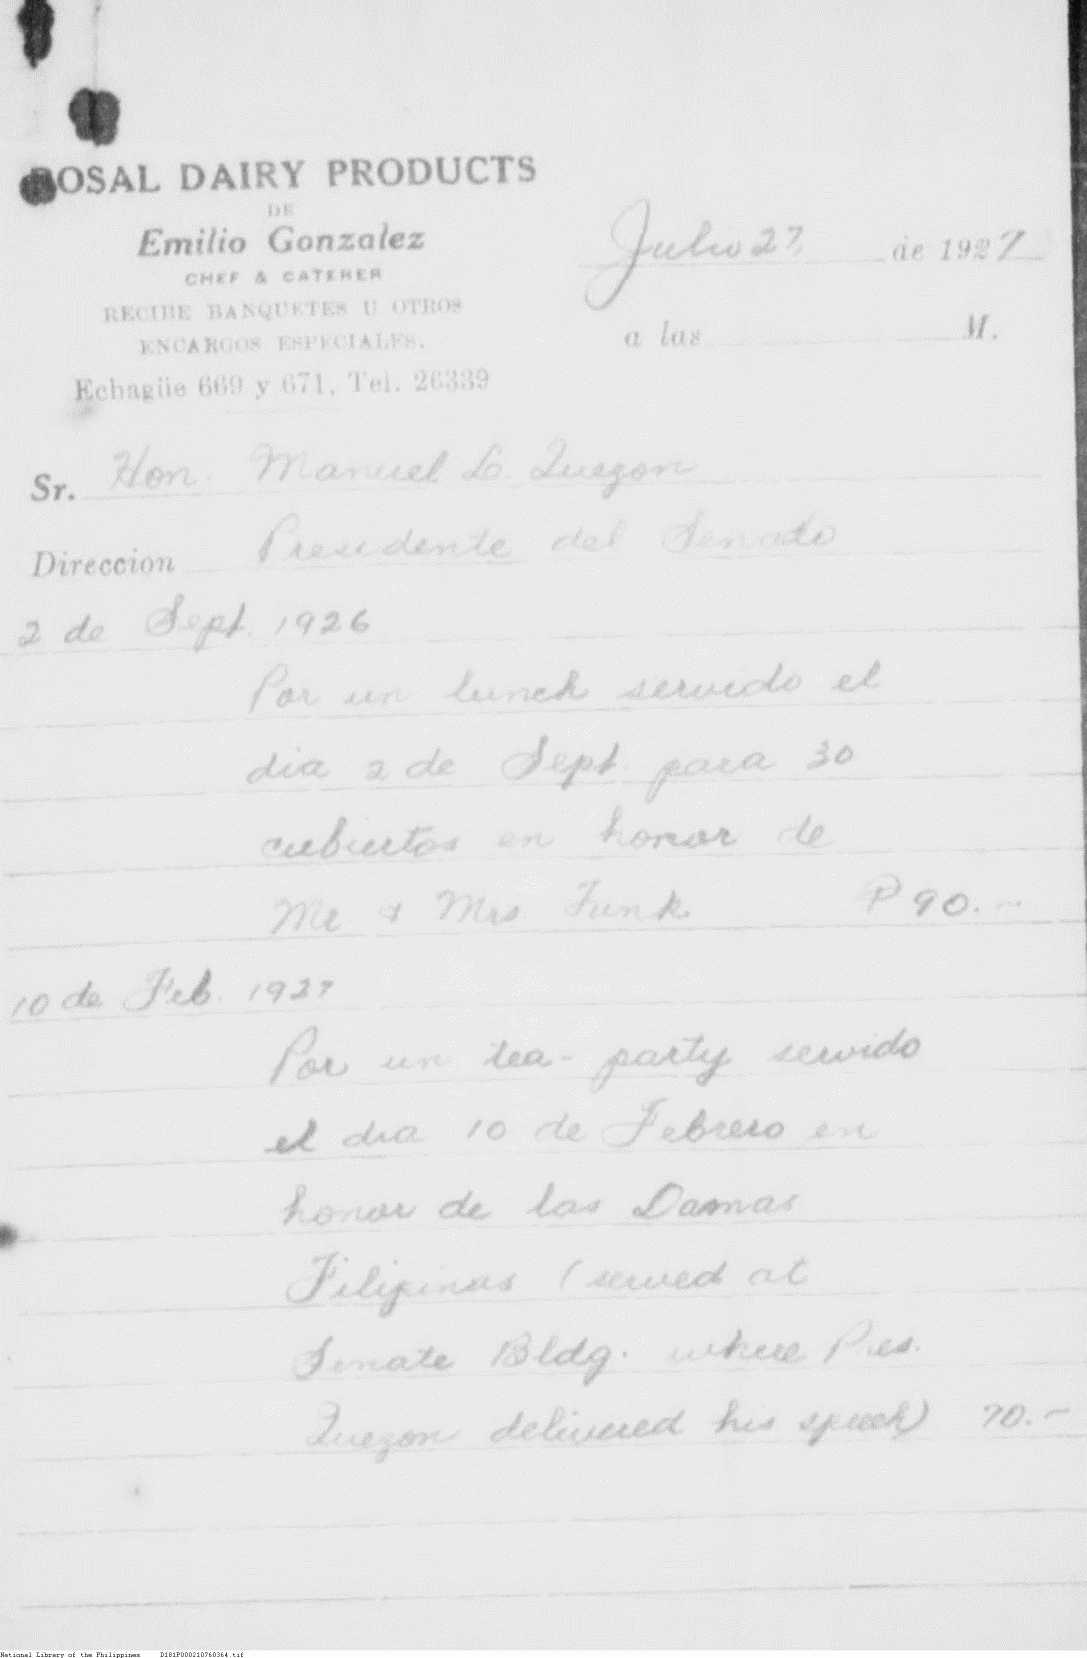 ROSAL DAIRY PRODUCTS
DE
Emilio Gonzalez
CHEF & CATERER
RECIBE BANQUETES U OTROS
ENCARGOS ESPECIALES.
Echagüe 669 y 671, Tel. 26339
Julio 27, de 1927
a las M.
Sr. Hon. Manuel L. Quezon
Direccion Presidente del Senato
2 de Sept. 1926
Por un lunch servido el
dia 2 de Sept. para 30
cubiertos en honor de
Mr & Mrs Funk ₱ 90.—
10 de Feb. 1927
Por un tea-party servido
el dia 10 de Febrero en
honor de las Damas
Filipinas (served at
Senate Bldg. where Pres.
Quezon delivered his speech) 70.—
National Library of the Philippines D181P000210760364.tif